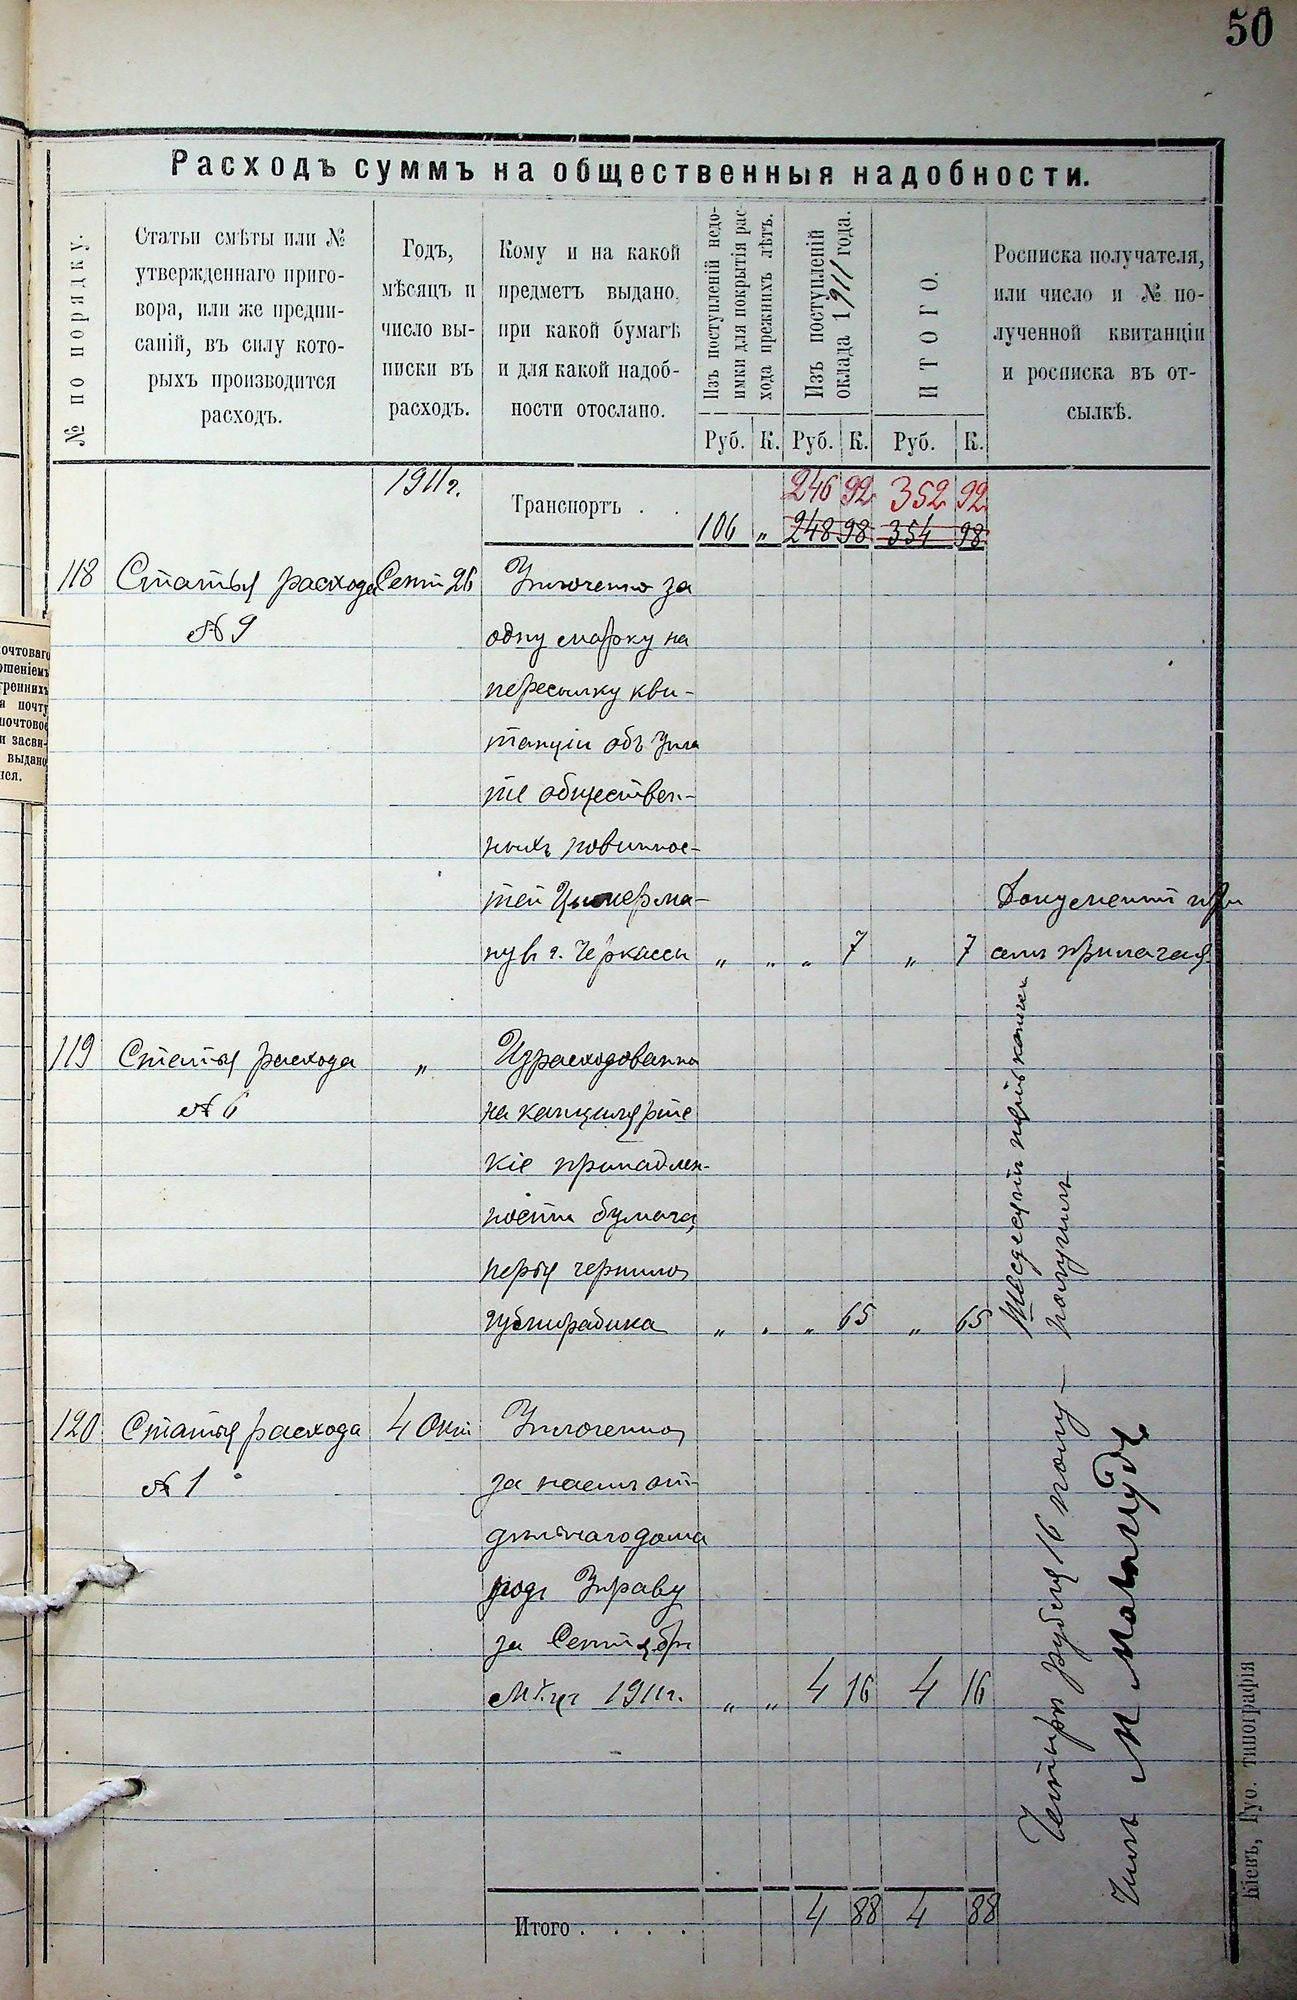 50
Расходъ суммъ на общественныя надобности.
№ по порядку.
Статьи смѣты или №
утвержденнаго приго-
вора, или же предпи-
саній, въ силу кото-
рыхъ производится
расходъ.
Годъ,
мѣсяцъ и
число вы-
писки въ
расходъ.
Кому и на какой
предметъ выдано,
при какой бумагѣ
и для какой надоб-
ности отослано.
Изъ поступленій недо-
имки для покрытія рас-
хода прежнихъ лѣтъ.
Изъ поступленій
оклада 1911 года.
ИТОГО.
Росписка получателя,
или число и № по-
лученной квитанціи
и росписка въ от-
сылкѣ.
Руб. К. Руб. К. Руб. К.
1911 г.
Транспортъ . .
246 92 352 92
106 „ 248 98 354 98
118 Статья расхода Сент 26 Уплочено за
№ 9 одну марку на
пересылку кви-
танціи объ упла
те обществен-
ныхъ повиннос-
тей Цимерма-
ну въ г. Черкассы „ „ „ 7 „ 7
Документъ при
семъ прилагая
119 Статья расхода „ Израсходованно
№ 6 на канцелярс
кіе принадлеж-
ности бумага,
перья чернило
„ „ „ 65 „ 65
Шесдесятъ пять копеек
получилъ
120 Статья расхода 4 Окт Уплоченно
№ 1 за наемъ от-
дельнаго дома
подъ Управу
за Сентябрь
М-цъ 1911 г. „ „ 4 16 4 16
Четыри рубля 16 полу-
чилъ
Итого . . . . 4 88 4 88
Кіевъ, Губ. типографія
очтоваго
ошеніемъ
тренихъ
а почту
почтовое
и засви-
выдано